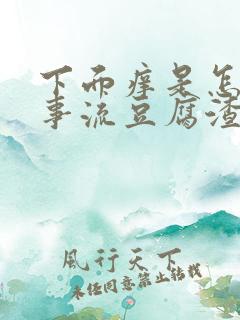 下而痒是怎
事流豆腐渣
風行天下
未经同意禁止转载